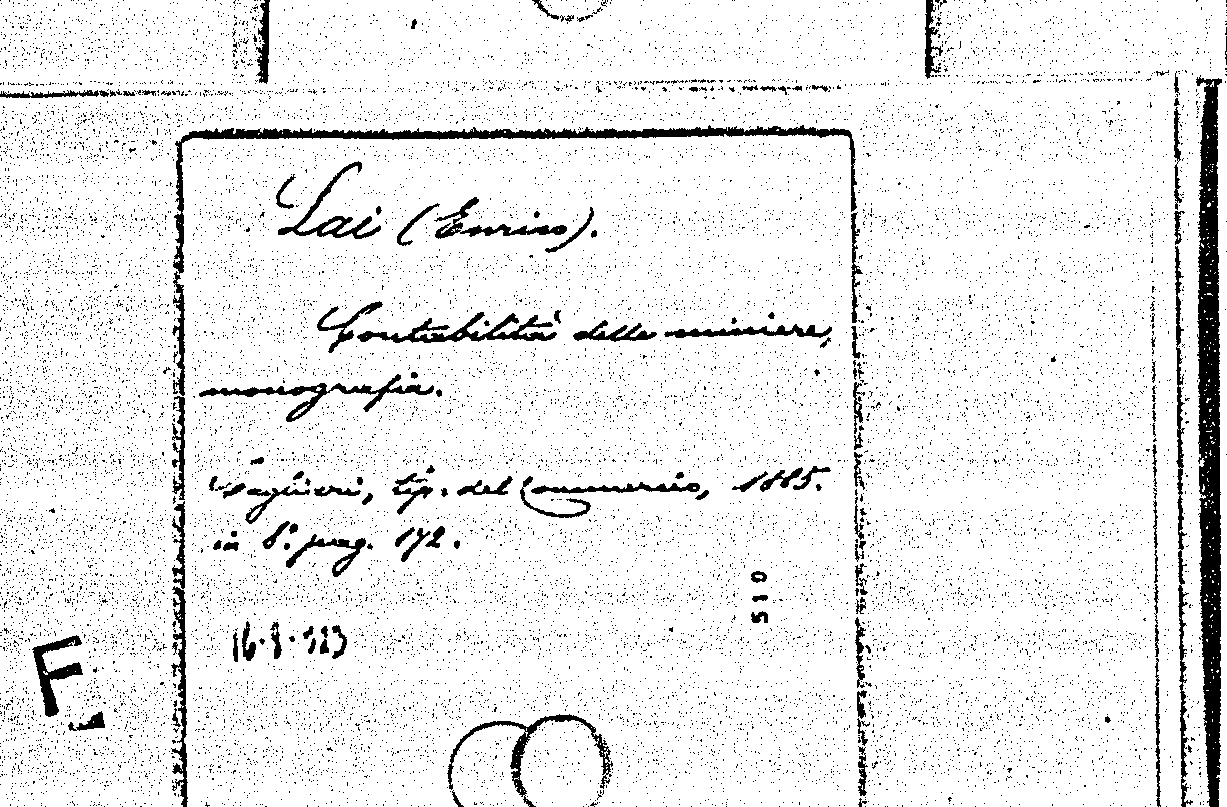 Lai (Enrico).
Contabilità delle miniere,
monografia.
Cagliari, tip. del Commercio, 1885.
in 8.° pag. 172.
510
F